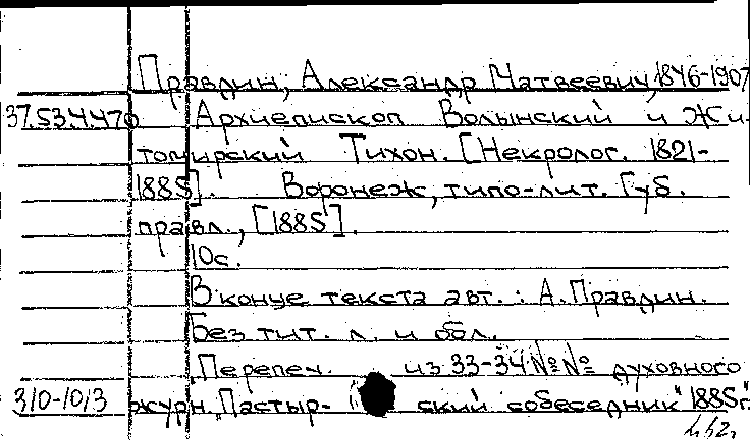 Правдин, Александр Матвеевич, 1846-1907
37.53.4.470 Архиепископ Волынский и Жи-
томирский Тихон. [Некролог. 1821-
1885]. Воронеж, типо-лит. Губ.
правл., [1885].
10с.
В конце текста авт.: А. Правдин.
Без тит. л. и обл.
Перепеч. из 33-34 №№ духовного
310-10/3 журн. "Пастыр- ский собеседник" 1885г.